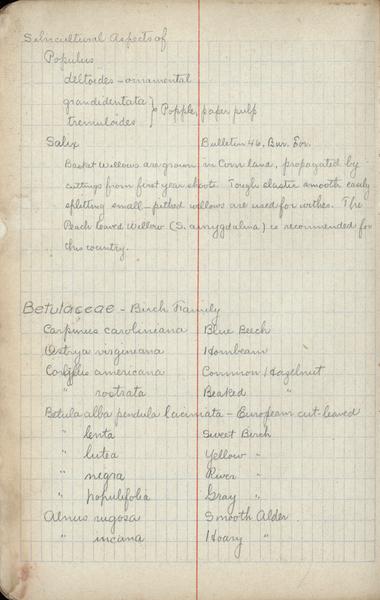 Silvicultural Aspects of
Populus
deltoides - ornamental
grandidentata } Popple, paper pulp
tremuloides
Salix Bulletin 46, Bur. For.
Basket Willows are grown in Corn land, propagated by
cuttings from first year shoots. Tough elastic smooth easily
splitting small-pithed willows are used for withes. The
Peach leaved Willow (S. amygdalina) is recommended for
this country.
Betulaceae - Birch Family
Carpinus caroliniana Blue Beech
Ostrya virginiana Hornbeam
Corylus americana Common Hazelnut
" rostrata Beaked "
Betula alba pendula laciniata - European cut-leaved
" lenta Sweet Birch
" lutea Yellow "
" negra River "
" populifolia Gray "
Alnus rugosa Smooth Alder
" incana Hoary "